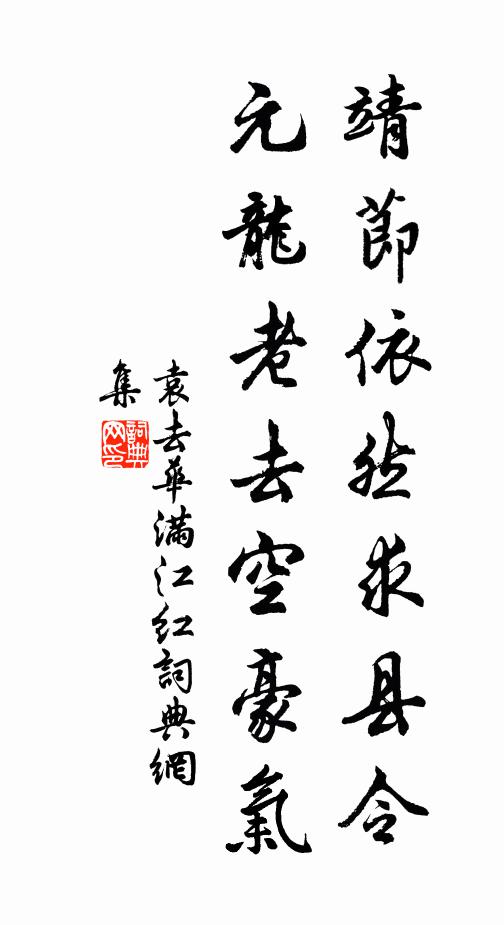 靖節依然求县令
元龍老去空豪氣
袁去華满江红詞典網
集
詞典
网印